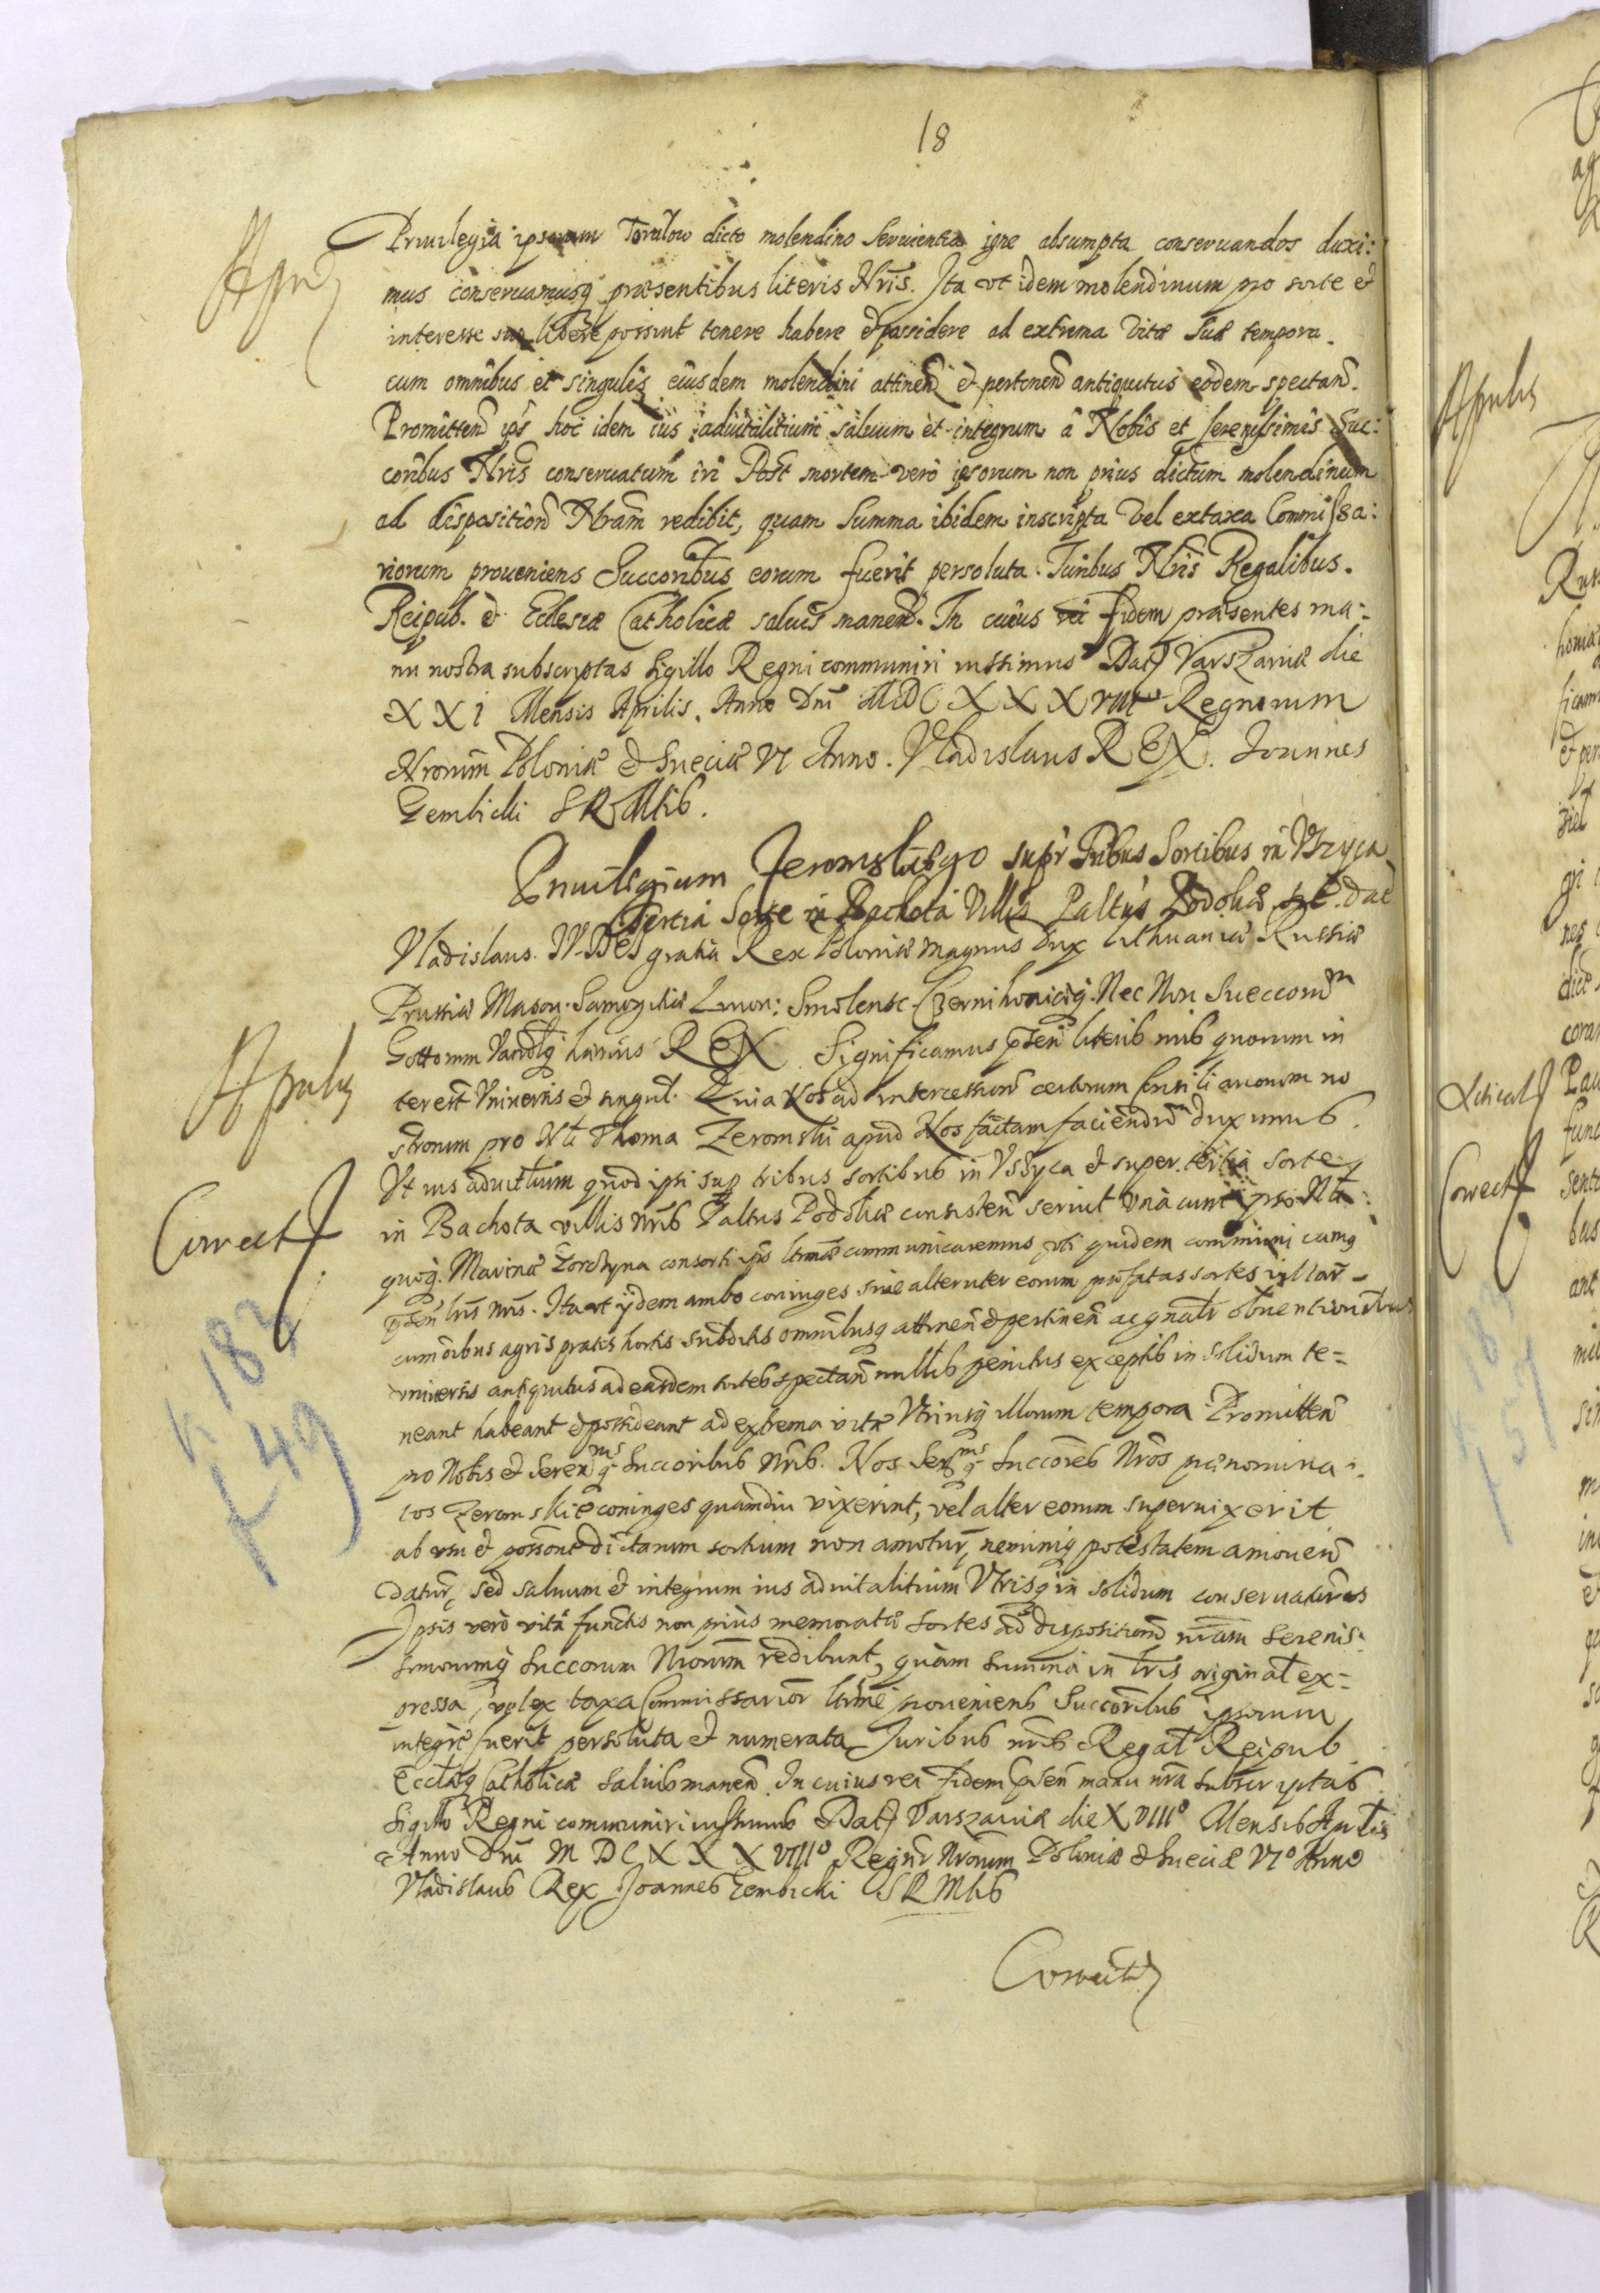 18
Priuilegia ipsorum Torulow dicto molendino seruientia igne absumpta conseruandos duxi:
mus conseruamusq præsentibus literis Nris. Ita vt idem molendinum pro sorte et
interesse suo libere possint tenere habere et possidere ad extrema vitæ suæ tempora.
cum omnibus et singulis eiusdem molendini attinen et pertinen antiquitus eodem spectan.
Promitten ips hoc idem ius aduitalitium saluum et integrum a Nobis et serenissimis Suc:
coribus Nris conseruatum iri Post mortem vero ipsorum non prius dictum molendinum
ad disposition Nram redibit, quam summa ibidem inscripta vel extaxa Commissa:
riorum proueniens Succoribus eorum fuerit persoluta. Iuribus Nris Regalibus.
Reipub. et Eclesiæ Catholicæ saluis manen. In cuius rei fidem præsentes ma:
nu nostra subscriptas Sigillo Regni communiri iussimus Dat Varszauiæ die
XXI Mensis Aprilis. Anno Dni MDCXXXVIII Regnorum
Nrorum Poloniæ et Sueciæ VI Anno. Vladislaus REX. Ioannes
Gembicki SRMtis.
Priuilegium Zeromskiego supr tribus Sortibus in Vszyca
tertia Sorte in Bachota Villis Paltus Podoliæ dat
Vladislaus IV Dei gratia Rex Poloniæ magnus Dux Lithuaniæ Russiæ
Prussiæ Masou: Samogitiæ Liuon: Smolensc Czernihouiæq Nec Non Sueccorum
Gottorum Vandlq hærius REX Significamus psen literib nrib quorum in
terest Vniuersis et singul. Quia Nos ad intercession certorum Consiliariorum no
strorum pro Nli Thoma Zeromski apud Nos factam faciendu duximus.
Vt ius aduitlium quod ipsi sup tribus sortibus in Vszyca et super tertia sorte
in Bachota villis nrib Paltus Podoliæ consisten seruit vnà cum ipso Nlt:
quoq. Marinæ Zordzyna consorti ips ltmæ communicaremus vti quidem communicamq
psen lris nris. Ita vt ijdem ambo coniuges siue alteruter eorum præfatas sortes villar
cum oibus agris pratis hortis subditis omnibusq attinen et pertinen ac gnalr obuentionibus
vniuersis antiquitus ad easdem sortes spectan nullib penitus exceptib in solidum te=
neant habeant et possideant ad extrema vitæ Vtriusq illorum tempora Promitten
pro Nobis et Seren mis q Succoribus Nrib. Nos Ser mos q Succores Nros prænomina:
tos Zeromskie coniuges quamdiu vixerint, vel alter eorum superuixerit
ab vsu et possone dictarum sortium non amotur, neminiq potestatem amouen
datur, sed saluum et integrum ius aduitalitium Vtrisq in solidum conseruaturos
Ipsis vero vità functis non prius memoratæ sortes ad disposition nram Serenis:
simorumq Succorum Nrorum redibunt, quàm summa in lris original ex=
pressa, vel ex taxa Commissarior ltime proueniens Succoribus ipsorum
integre fuerit persoluta et numerata Iuribus nris Regal Reipub
Ecclæq Catholicæ saluis manen In cuius rei fidem psen manu nra subscriptas
Sigillo Regni communiri iussimus Dat Varszauiæ die XVIII° Mensis Aprlis
Anno Dni MDCXXXVIII° Regnor Nrorum Poloniæ et Sueciæ VI° Anno
Vladislaus Rex Ioannes Gembicki SRMtis
Correct
Correct
K 183
F 49